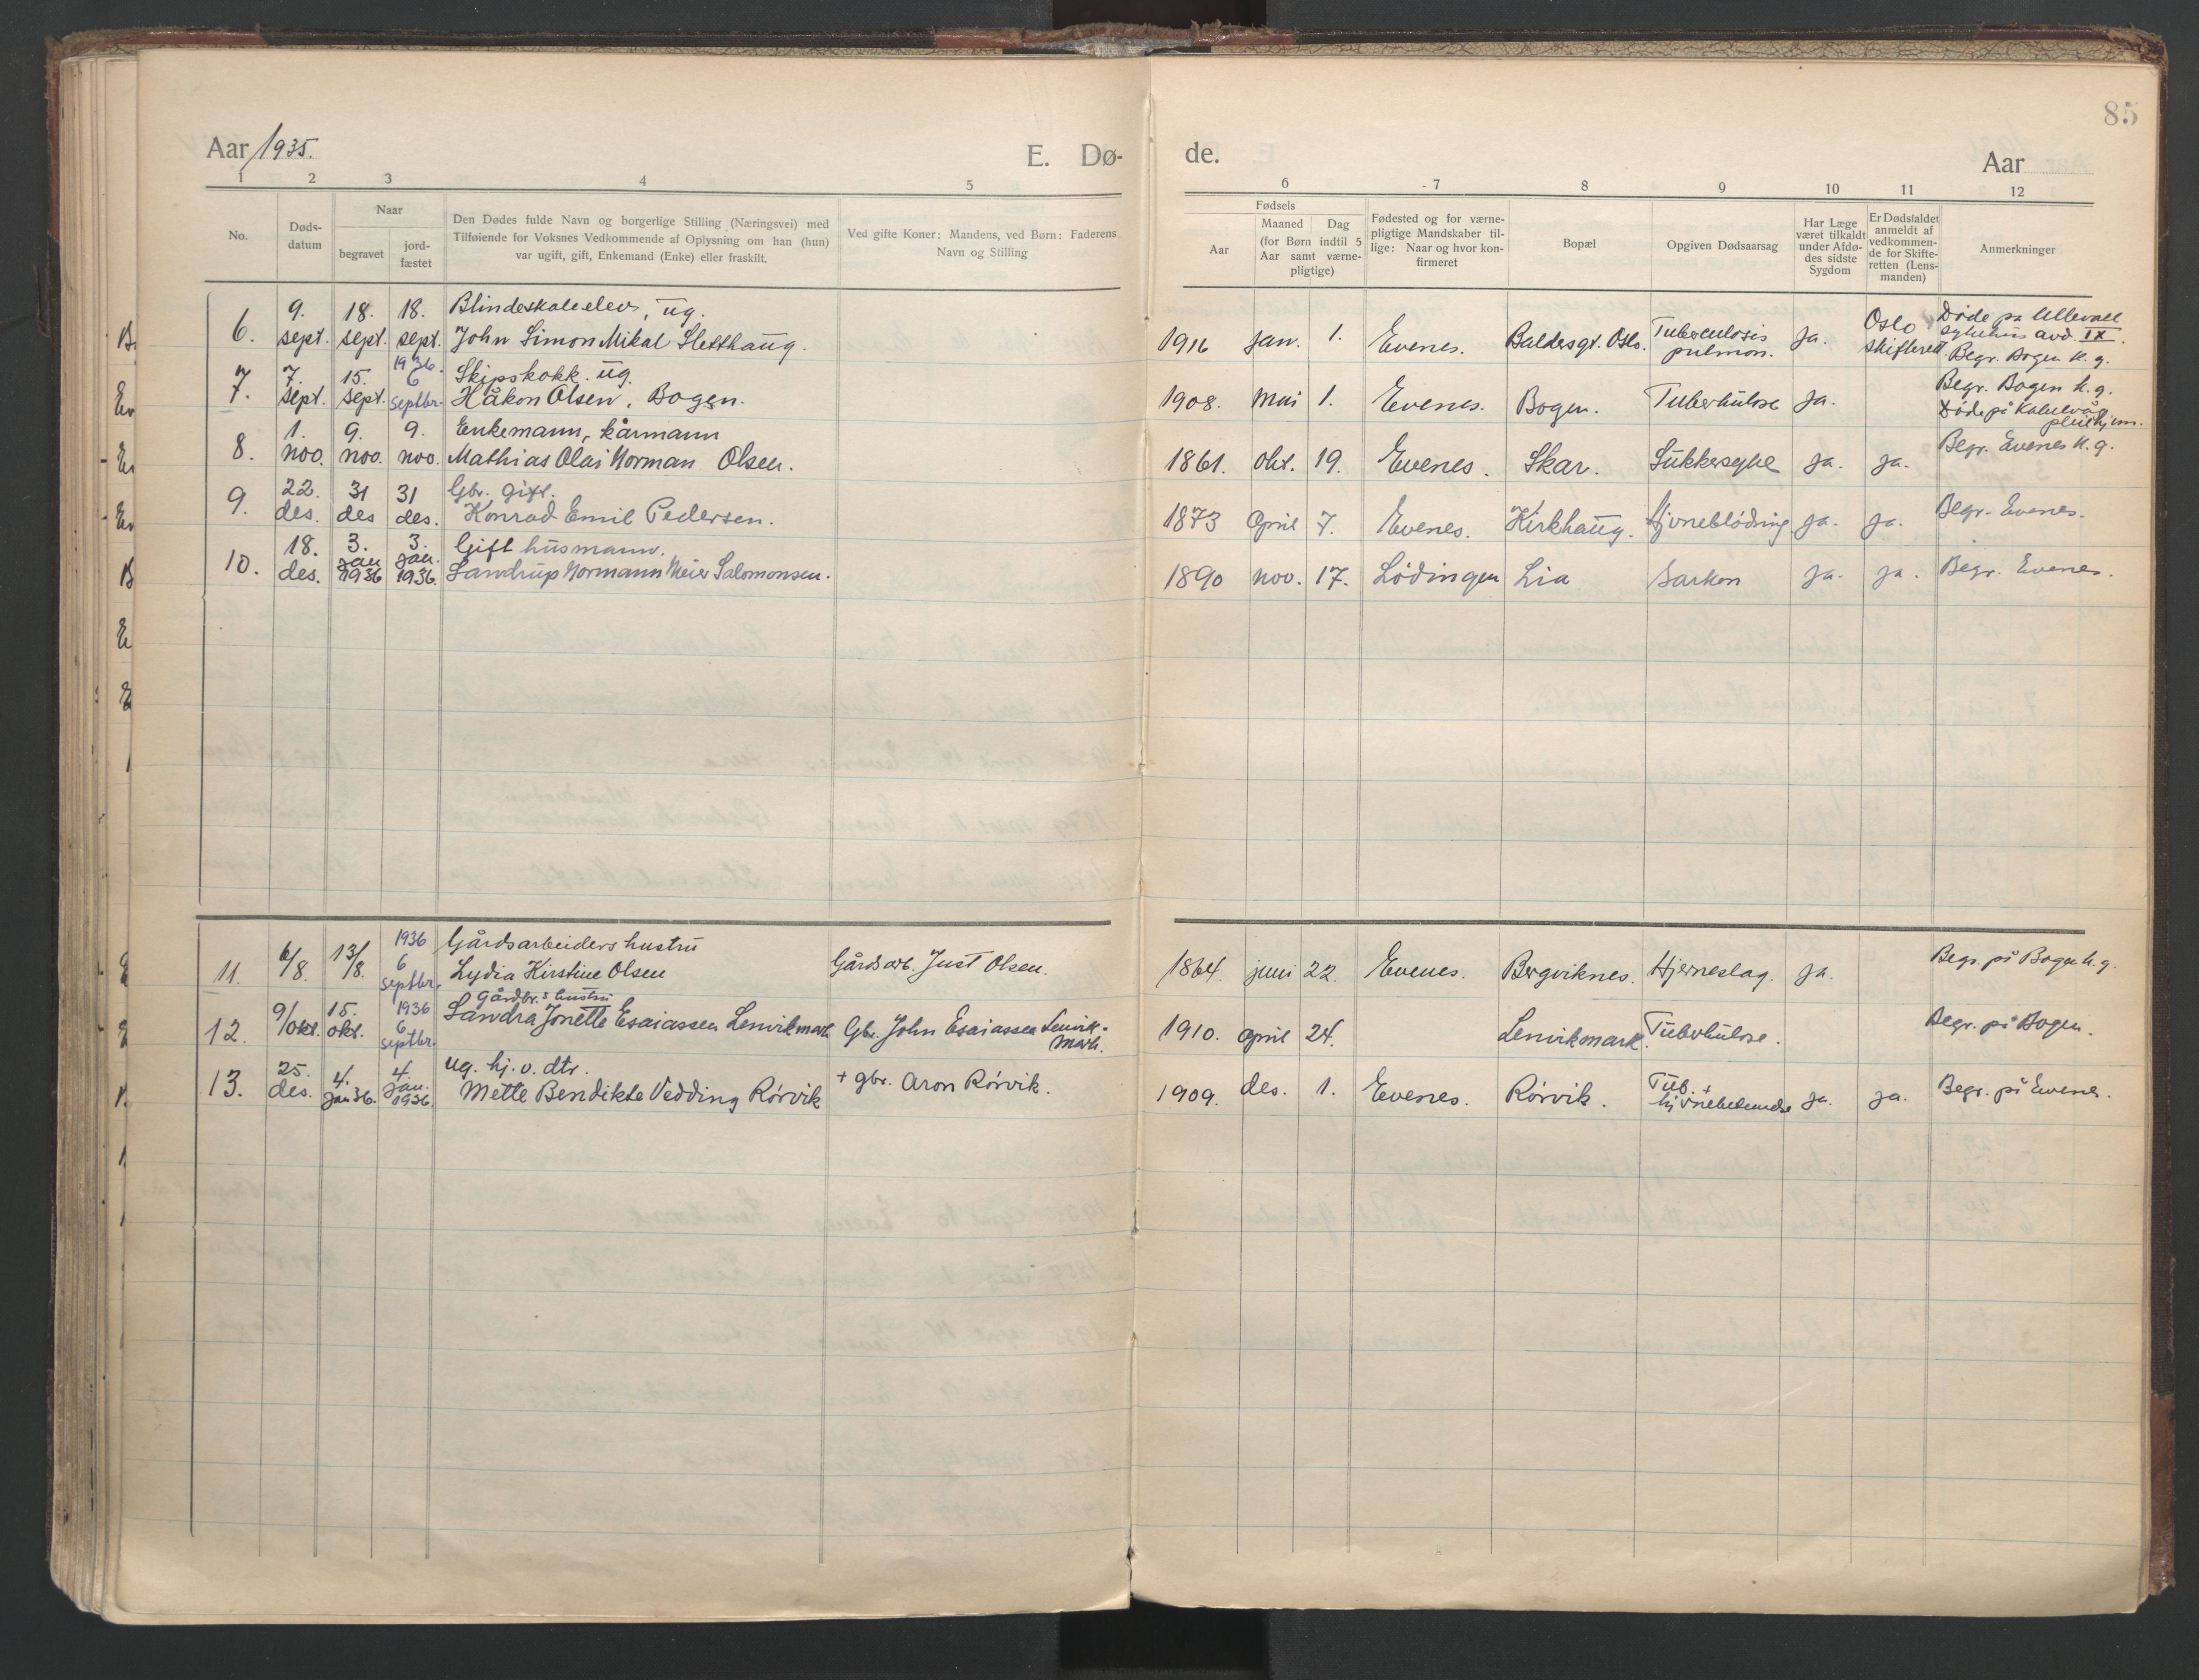 85
Aar 1935. E. Dø- de. Aar
1 2 3 4 5 6 7 8 9 10 11 12
No.
Døds-
datum
Naar
begravet
jord-
fæstet
Den Dødes fulde Navn og borgerlige Stilling (Næringsvei) med
Tilføiende for Voksnes Vedkommende af Oplysning om han (hun)
var ugift, gift, Enkemand (Enke) eller fraskilt.
Ved gifte Koner: Mandens, ved Børn: Faderens
Navn og Stilling
Fødsels
Aar
Maaned Dag
(for Børn indtil 5
Aar samt værne-
pligtige)
Fødested og for værne-
pligtige Mandskaber til-
lige: Naar og hvor kon-
firmeret
Bopæl
Opgiven Dødsaarsag
Har Læge
været tilkaldt
under Afdø-
des sidste
Sygdom
Er Dødsfaldet
anmeldt af
vedkommen-
de for Skifte-
retten (Lens-
manden)
Anmerkninger
9. 18. 18. Blindeskoleelev, ug. Oslo Døde på Ullevaal
6. sept. sept. sept. John Simon Mikal Sletthaug. 1916 jan. 1. Evenes. Baldersgt. Oslo. Tuberculosis ja. skifterett sykehus avd. IX.
pulmon. Begr. Bogen k. g.
1936.
7. 15. 6 Skipskokk. ug. Begr. Bogen k. g.
7. sept. sept. septbr. Håkon Olsen, Bogen. 1908. mai 1. Evenes. Bogen. Tuberkulose ja. Døde på
pleiehjem.
1. 9. 9. Enkemann, kårmann Begr. Evenes k. g.
8. nov. nov. nov. Mathias Olai Norman Olsen. 1861. okt. 19. Evenes. Skar. Sukkersyke ja. ja.
22. 31 31 Gbr. gift. Begr. Evenes.
9. des. des des. Konrad Emil Pedersen. 1873 april 7. Evenes. Kirkhaug. Hjerneblødning ja. ja.
18. 3. 3. Gift husmann.
10. des. jan 1936 jan. 1936. Sandrup Normann Meier Salomonsen. 1890 nov. 17. Lødingen Lia Sarkom ja. ja. Begr. Evenes.
1936 Gårdsarbeiders hustru
11. 6/8. 13/8. 6 septbr. Lydia Kirstine Olsen Gårdsarb. Just Olsen. 1864. juni 22. Evenes. Bergviknes. Hjerneslag. ja. Begr. på Bogen k. g.
Gårdbr.s hustru
12. 9/okt. 15. okt. 1936 6 septbr. Sandra Jonette Esaiassen Lenvikmark Gbr. John Esaiassen Lenvik-
mark. 1910. april 24. Lenvikmark. Tuberkulose. Begr. på Bogen.
25. 4. 4. ug. hj. v. dtr.
13. des. jan 36. jan. 1936. Mette Bendikte Vedding Rørvik + gbr. Aron Rørvik. 1909. des. 1. Evenes. Rørvik. Tub. +
hjernebetendse ja. ja. Begr. på Evenes.